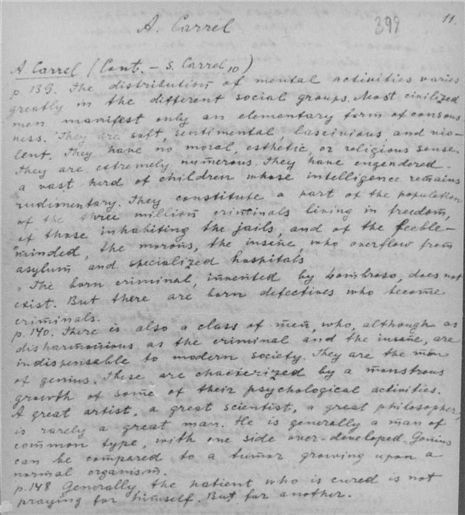 A. Carrel
399
11.
A Carrel (Cont. – S. Carrel 10)
p. 139. The distribution of mental activities varies
greatly in the different social groups. Most civilized
men manifest only an elementary form of consous
ness. They are soft, sentimental, lascivious, and vio-
lent. They have no moral, esthetic, or religious sense.
They are extremely numerous. They have engendered
a vast herd of children whose intelligence remains
rudimentary. They constitute a part of the population
of the three million criminals living in freedom,
of those inhabiting the jails, and of the feeble-
minded, the morons, the insane, who overflow from
asylum and specialized hospitals
The born criminal, invented by Lombroso, does not
exist. But there are born defectives who become
criminals.
p. 140. There is also a class of men, who, although as
disharmonious as the criminal and the insane, are
indispensable to modern society. They are the men
of genius. These are chacterized by a monstrous
growth of some of their psychological activities.
A great artist, a great scientist, a great philosopher,
is rarely a great man. He is generally a man of
common type, with one side over-developed. Genius
can be compared to a tumor growing upon a
normal organism.
p. 148 Generally the patient who is cured is not
praying for himself. But for another.